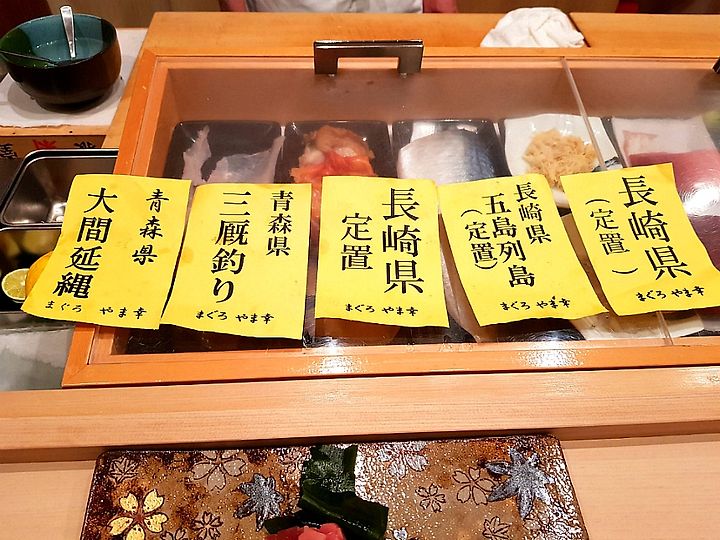 青森県
大間延縄
まぐろ やま幸
青森県
三厩釣り
まぐろ やま幸
長崎県
定置
まぐろ やま幸
長崎県
五島列島
（定置）
まぐろ やま幸
長崎県
（定置）
まぐろ やま幸